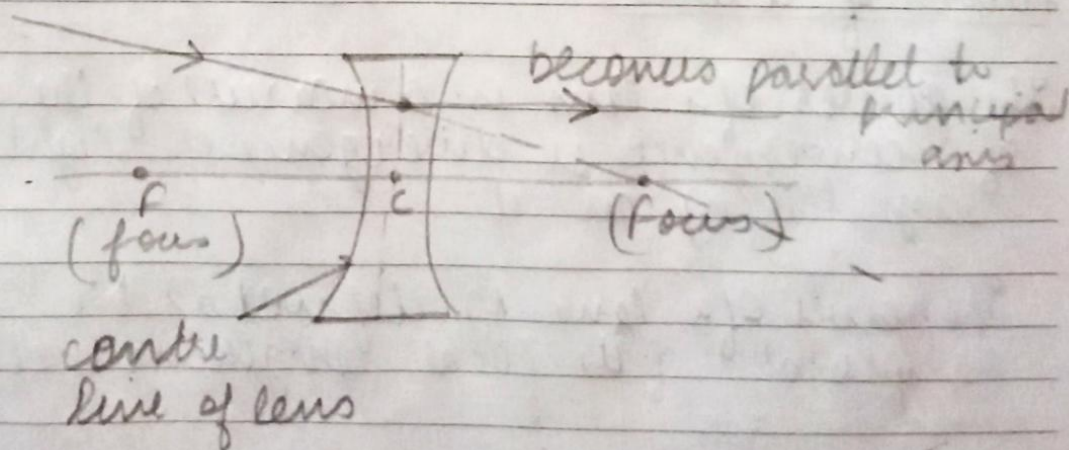 becomes parallel to
principal
axis
F
C
(focus)
(focus)
centre
line of lens